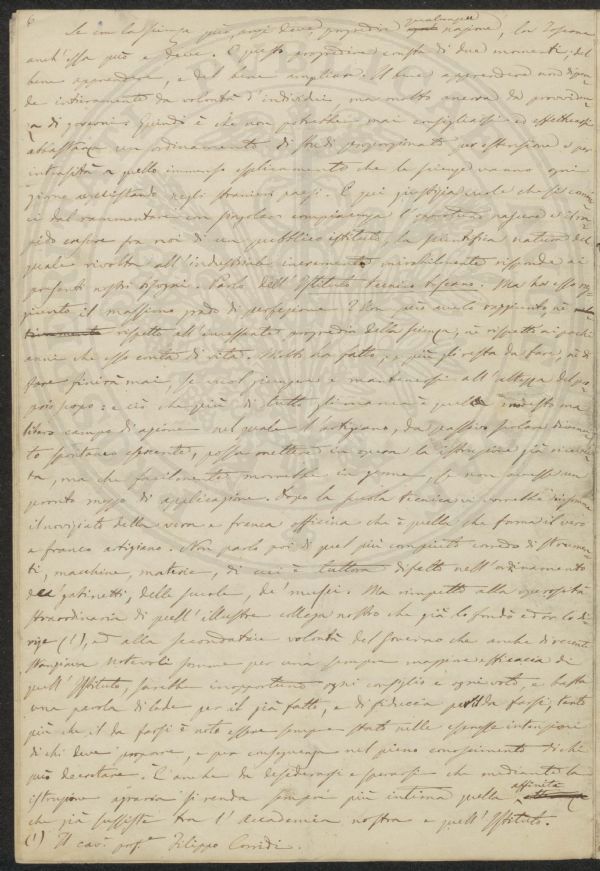 6
Se con la scienza può, anzi deve, progredire qualunque nazione, la Toscana
anch'essa può e deve. E questo progredire consta di due momenti; del
bene apprendere, e del bene ampliare. Il bene apprendere non dipen-
de intieramente da volontà d'individui, ma molto ancora da provviden-
za di governi: Quindi è che non potrebbe mai consigliarsi ed effettuarsi
abbastanza un ordinamento di studi proporzionato per estensione e per
intensità a quello immenso esplicamento che le scienze vanno ogni
giorno acquistando negli stranieri paesi. E qui giustizia vuole che si comin-
ci dal rammentare con singolare compiacenza il
pido crescere fra noi di un pubblico istituto, la scientifica natura del
quale rivolta all'industriale incremento mirabilmente risponde ai
presenti nostri bisogni. Parlo dell'Istituto tecnico toscano. Ma ha esso rag-
giunto il massimo grado di perfezione? Non può averlo raggiunto, nè
rispetto all'incessante progredire della scienza, nè rispetto ai pochi
anni che esso conta di vita. Molto ha fatto, ma più gli resta da fare, nè di
fare finirà mai, se vuol giungere e mantenersi all'altezza del pro-
prio scopo: e ciò che più di tutto gli manca è quel modesto ma
libero campo d'azione nel quale l'artigiano, da passivo scolare divenu-
to spontaneo esercente, possa mettere in opera la istruzione già ricevu-
ta, ma che facilmente morrebbe in germe, se non avesse un
pronto mezzo di applicazione. Dopo la scuola tecnica vi vorrebbe insomma
il noviziato della vera e franca officina che è quella che forma il vero
e franco artigiano. Non parlo poi di quel più compiuto corredo di strumen-
ti, macchine, materie, di cui è tuttora difetto nell'ordinamento
dei gabinetti, delle scuole, de' musei. Ma rimpetto alla operosità
straordinaria di quell'illustre collega nostro che già lo fondò ed or lo di-
rige (1), ed alla secondatrice volontà del Governo che anche di recente
stanziava notevoli somme per una sempre maggiore efficacia di
quell'Istituto, sarebbe inopportuno ogni consiglio e ogni voto, e basta
una parola di lode per il già fatto, e di fiducia pel da farsi; tanto
più che il da farsi è noto essere sempre stato nelle espresse intenzioni
di chi deve proporre, e per conseguenza nel pieno conoscimento di chi
può decretare. È anche da desiderarsi e sperarsi che mediante la
istruzione agraria si renda sempre più intima quella affinità
che già sussiste tra l'Accademia nostra e quell'Istituto.
(1) Il cav. prof.e Filippo Corridi.